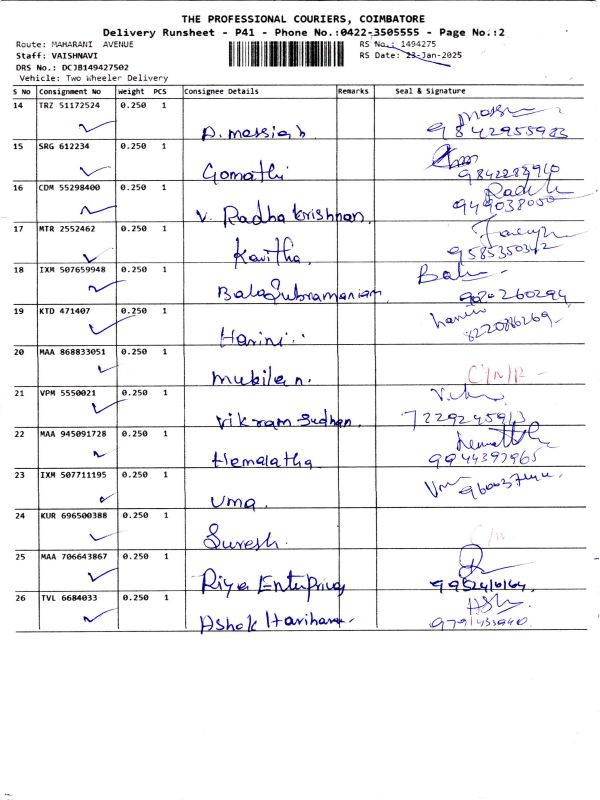 THE PROFESSIONAL COURIERS, COIMBATORE
Delivery Runsheet - P41 - Phone No.:0422-3505555 - Page No.:2
Route: MAHARANI AVENUE
RS No.: 1494275
Staff: VAISHNAVI
RS Date: 23-Jan-2025
DRS No.: DCJB149427502
Vehicle: Two Wheeler Delivery
S No Consignment No Weight PCS Consignee Details Remarks Seal & Signature
14 TRZ 51172524 0.250 1
A. Messiah 9842955983
15 SRG 612234 0.250 1
Gomathi
16 CDM 55298400 0.250 1
V. Radha Krishnan.
17 MTR 2552462 0.250 1
Kavitha. 9585350342
18 IXM 507659948 0.250 1 Balu
BalaSubramaniam
19 KTD 471407 0.250 1
Harini. 8220886269
20 MAA 868833051 0.250 1
Mukilan. C/N/R -
21 VPM 5550021 0.250 1
Vikram Sudhan.
22 MAA 945091728 0.250 1
Hemalatha 9944397965
23 IXM 507711195 0.250 1
Uma.
24 KUR 696500388 0.250 1
Suresh.
25 MAA 706643867 0.250 1
Riya
26 TVL 6684033 0.250 1
Ashok Hariharan.